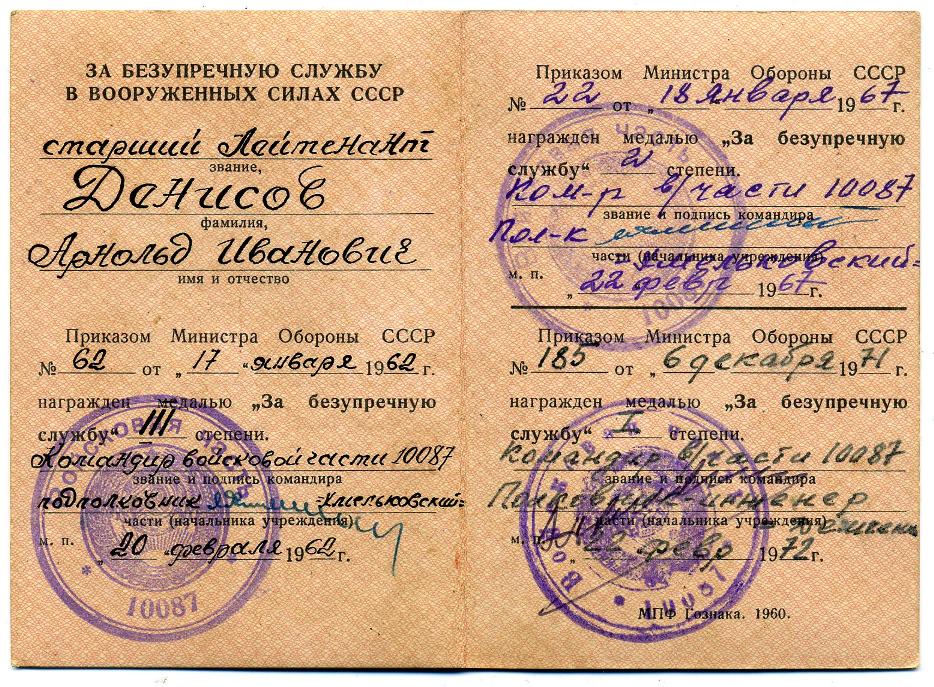 ЗА БЕЗУПРЕЧНУЮ СЛУЖБУ
В ВООРУЖЕННЫХ СИЛАХ СССР
старший Лейтенант
звание,
Денисов
фамилия,
Арнольд Иванович
имя и отчество
Приказом Министра Обороны СССР
№ 62 от „17“ января 1962 г.
награжден медалью „За безупречную
службу“ III степени.
Командир войсковой части 10087
звание и подпись командира
подполковник =Хмельковский=
части (начальника учреждения)
м. п. „20“ февраля 1962 г.
10087
Приказом Министра Обороны СССР
№ 22 от „18 января 1967 г.
награжден медалью „За безупречную
службу“ 2 степени.
Ком-р в/части 10087
звание и подпись командира
Пол-к
части (начальника учреждения)
Хмельковский=
м. п. „22 февр 1967 г.
Приказом Министра Обороны СССР
№ 185 от „6 декабря 1971 г.
награжден медалью „За безупречную
службу“ I степени.
Командир в/части 10087
звание и подпись командира
Полковник-инженер
части (начальника учреждения)
м. п. „22 февр 1972 г.
10087
МПФ Гознака. 1960.